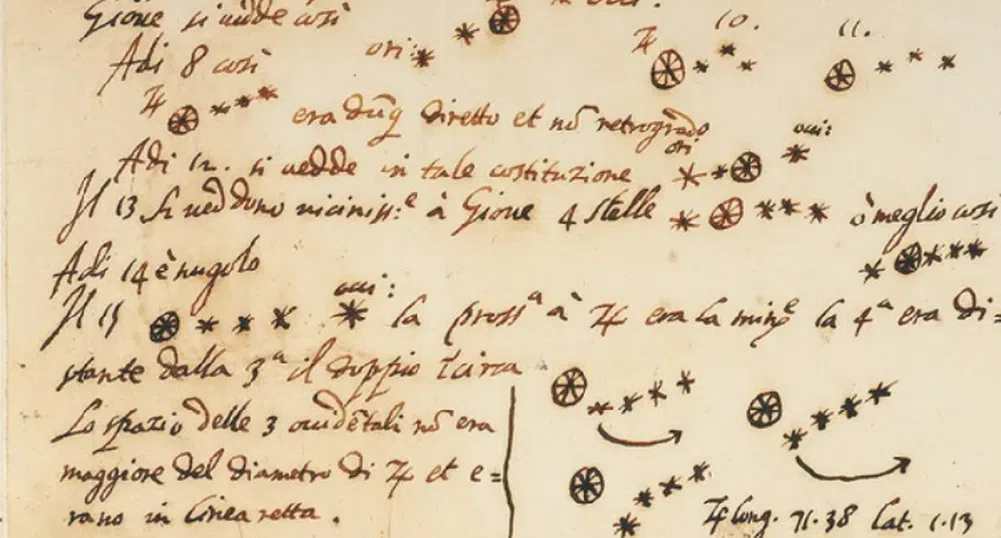 Gioue si uedde così
Adi 8 così ori:
♃ 10. 11.
♃ era dūq diretto et nō retrogrado
Adi 12. si uedde in tale costituzione ori occi:
Il 13 si ueddono viciniss.e à Gioue 4 stelle ò meglio così
Adi 14 è nugolo
Il 15 occi: la pross.a à ♃ era la min.e la 4.a era di=
stante dalla 3.a il doppio circa
Lo spazio delle 3 occidētali nō era
maggiore del diametro di ♃ et e=
rano in linea retta.
♃ long. 71.38 lat. 1.13